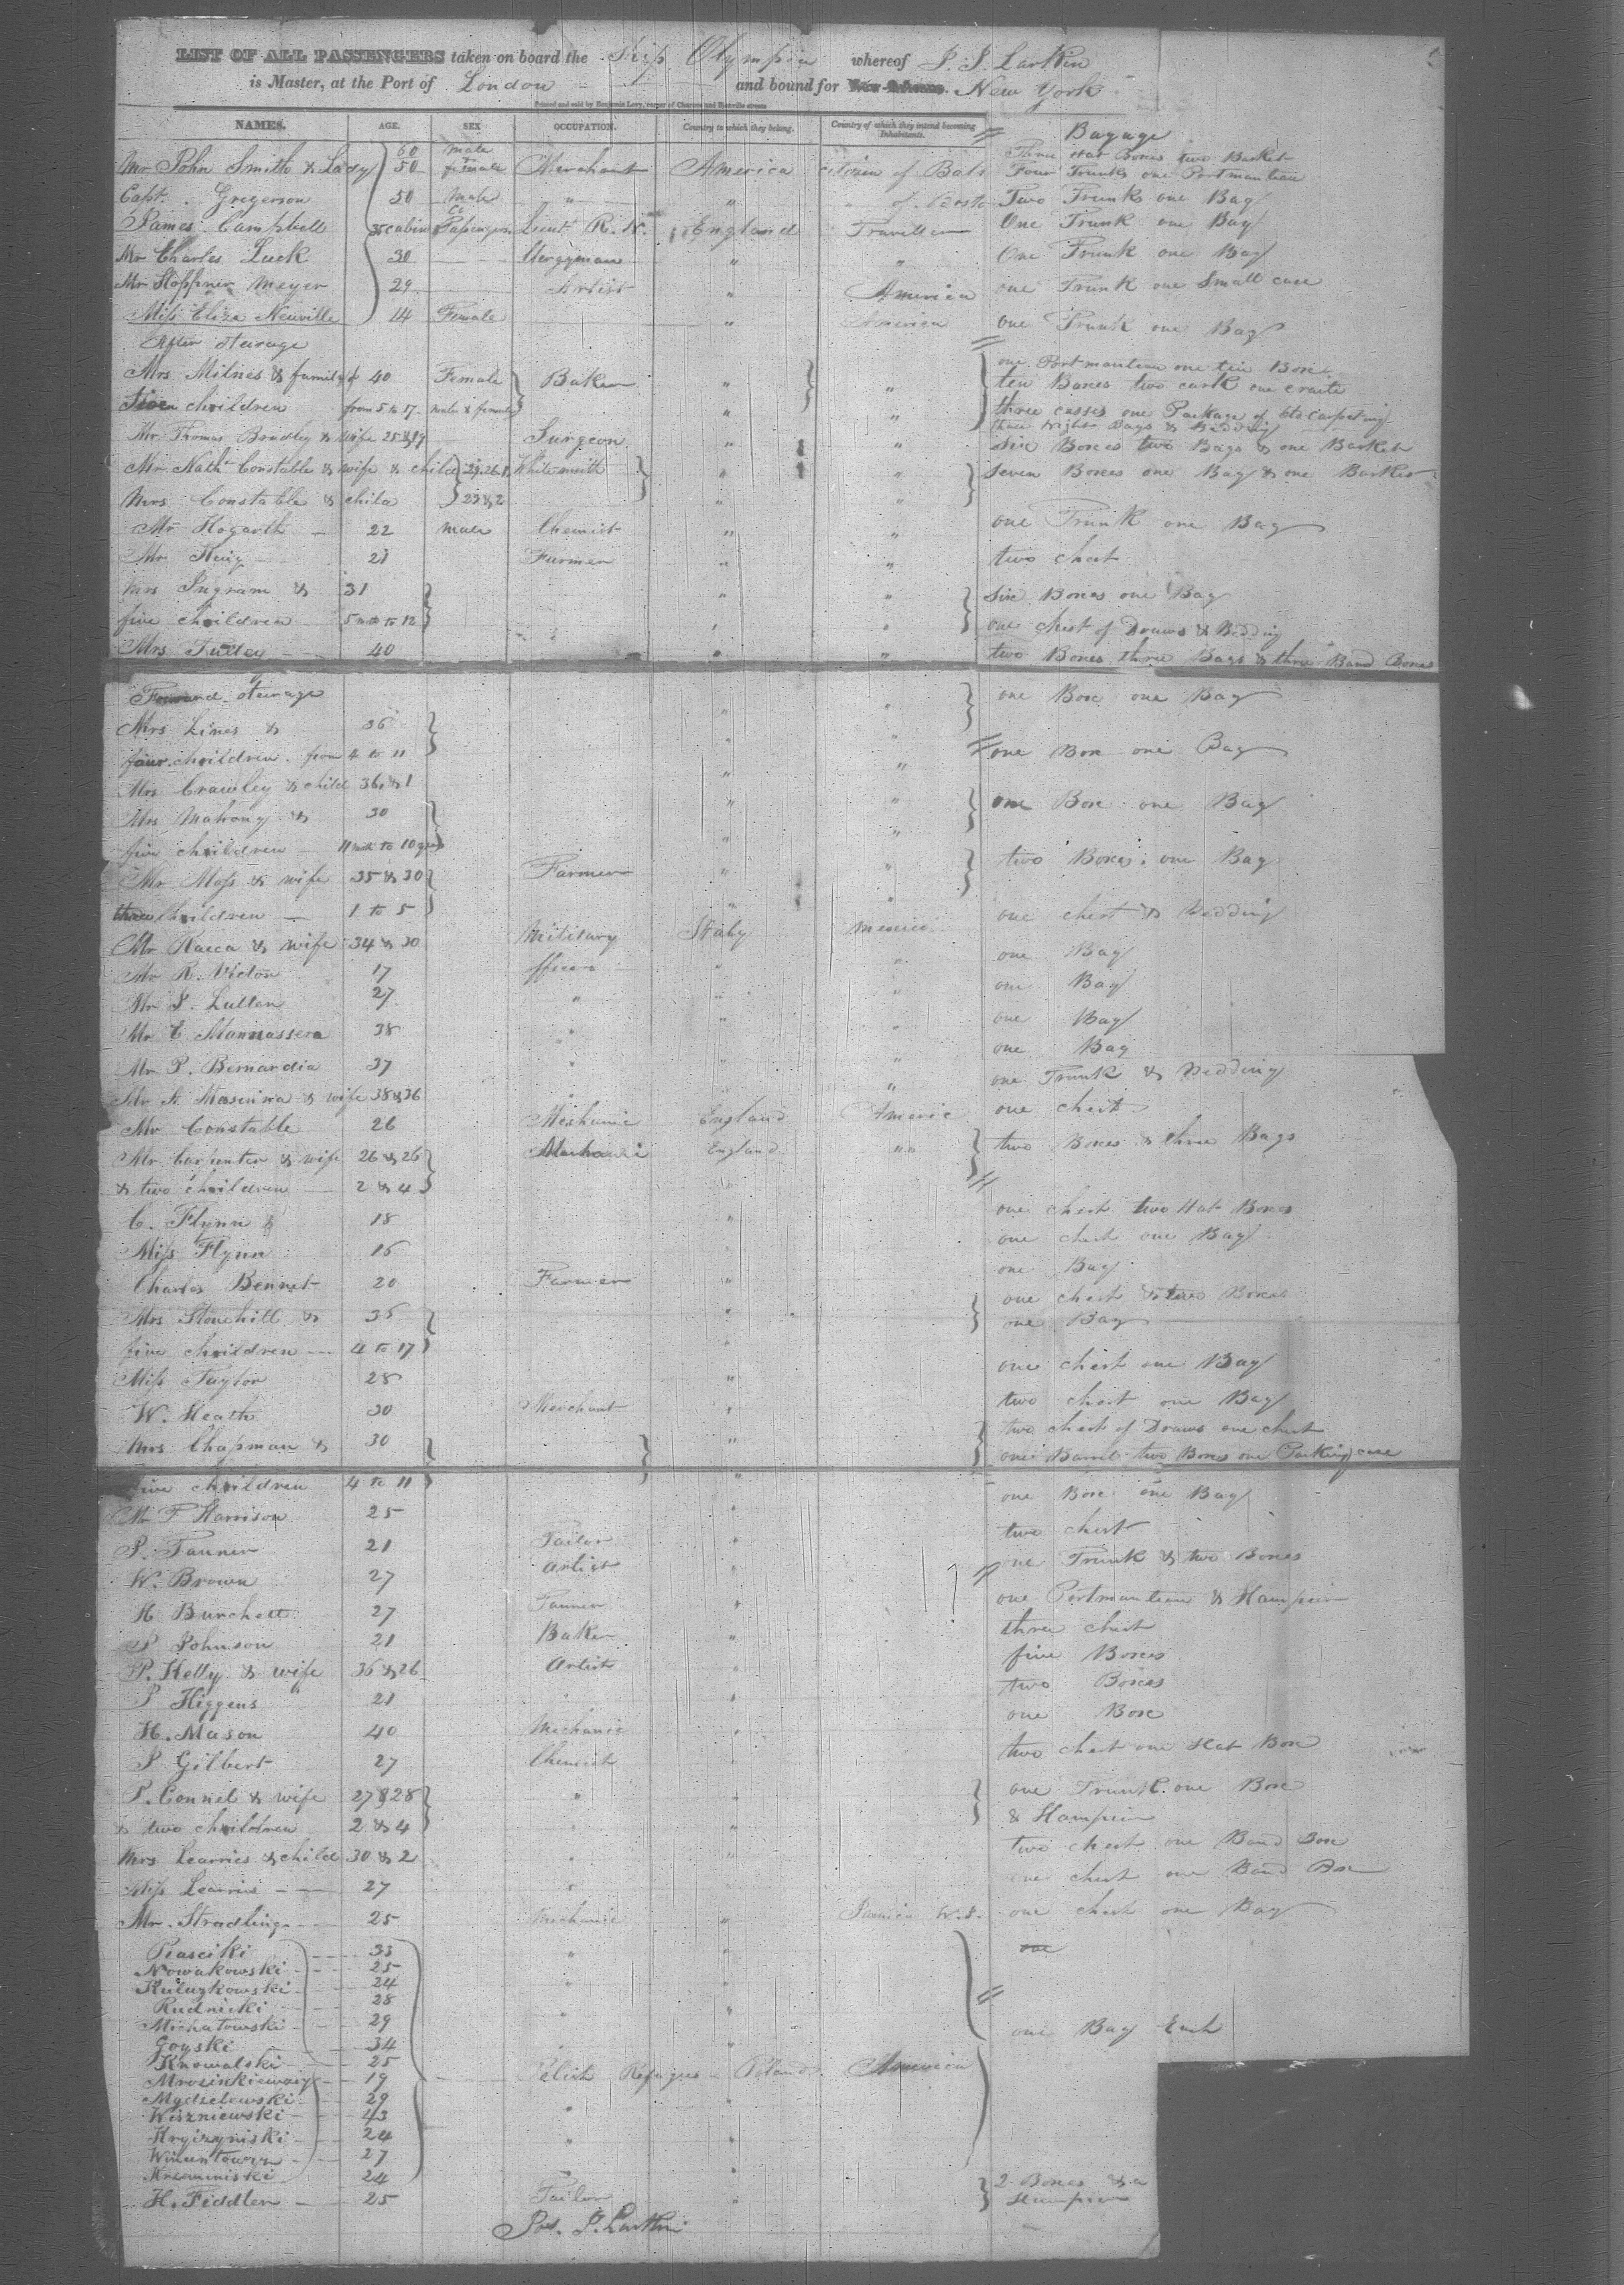 LIST OF ALL PASSENGERS taken on board the Ship Olympia whereof J. J. Larkin
is Master, at the Port of London and bound for New Orleans. New York
Printed and sold by Benjamin Levy, corner of Chartres and Bienville streets
NAMES. AGE. SEX OCCUPATION. Country to which they belong. Country of which they intend becoming Inhabitants. Bagage
60 male Three Hat Boxes two Basket
Mr John Smith & Lady 50 female Merchant America citizin of Bals Four Trunks one Portmanteau
Capt. Gregerson 50 Male " " " of Bosto Two Trunks one Bag
James Campbell cabin Passengers Lieut R. N. England Traveller One Trunk one Bag
Mr Charles Luck 30 Clergyman " " One Trunk one Bag
Mr Hoppner Meyer 29 Artist " America one Trunk one Small case
Miss Eliza Neuville 14 Female " America one Trunk one Bag
After sterage
one Portmanteau one tin Box
Mrs Milnes & family of 40 Female Baker " " ten Boxes two cask one craite
children from 5 to 17 male & female " " three casses one Package of Carpeting
three night Bags & Bedding
Mr. Thomas Bradley & wife 25 & 19 Surgeon " " six Boxes two Bags & one Basket
Mr Nathl Constable & wife & child 29, 26, 1 Whitesmith " " seven Boxes one Bag & one Basket
Mrs Constable & child 23 & 2 " "
Mr Hogarth 22 male Chemist " " one Trunk one Bag
Mr King 21 Farmer " " two chest
Mrs Ingram & 31 " " six Boxes one Bag
five children 5 mth to 12 " " one chest of Draws & Bedding
Mrs Tulley 40 " " two Boxes three Bags & three Band Boxes
Forward sterage one Box one Bag
Mrs Lines & 36 " "
four children from 4 to 11 " " one Box one Bag
Mrs Crawley & child 36 & 1 " "
Mrs Mahony & 30 " " one Box one Bag
five children 11 mth to 10 years " "
Mr Moss & wife 35 & 30 Farmer " " two Boxes one Bag
three children 1 to 5 " "
Mr Racca & wife 34 & 30 Military Italy Mexico one chest & Bedding
Mr R. Victon 17 fficers " " one Bag
Mr J. Lullan 27 " " " one Bag
Mr C Mannassera 38 " " " one Bag
Mr P. Bernardia 37 " " " one Bag
Mr A Masinira & wife 38 & 36 " " one Trunk & Bedding
Mr Constable 26 Meshanic England Americ one chest
Mr Carpenter & wife 26 & 26 Mechanic England " " two Boxes & three Bags
& two children 2 & 4 "
C. Flynn & 18 " one chest two Hat Boxes
Miss Flynn 16 " one chest one Bag
Charles Bennet 20 Farmer " one Bag
Mrs Stonehill & 36 " one chest & two Boxes
one Bag
five children 4 to 17 "
Miss Taylor 28 " one chest one Bag
W. Heath 30 Merchant " two chest one Bag
Mrs Chapman & 30 " two chest of Draws one chest
one Barrel two Boxes one Packing case
five children 4 to 11 "
Mr F Harrison 25 " one Box one Bag
J. Tanner 21 Tailor " two chest
W. Brown 27 artist " one Trunk & two Boxes
H Burchett 27 Tanner " one Portmanteau & Hamper
J Johnson 21 Baker " three chest
P. Kelly & wife 36 & 26 artist " five Boxes
J Higgens 21 " " two Boxes
H. Mason 40 Mechanic " one Box
J Gilbert 27 Chemist " two chest one Hat Box
P. Connel & wife 27 & 28 " " one Trunk one Box
& two children 2 & 4 " " & Hamper
Mrs Learnies & child 30 & 2 " " two chest one Band Box
Miss Learnis 27 " " one chest one Band Box
Mr. Stradling 25 Mechanic " Jamica W. I. one chest one Bag
Piasciki 33 " " one
Nowakowski 25
Kuluzkowski 24 "
Rudnicki 28 " "
Michatowski 29 one Bag Each
Goyski 34 "
Knowalski 25
Mrozinkiewoz 19 Polish Refugees Poland America
Mgdzelewski 29
Wiszniewski 43 " "
Kryizyniski 24 " "
27
Krezminiski 24 " 2 Boxes & a
H. Fiddler 25 Tailor " Hamper
Jos. J. Larkin